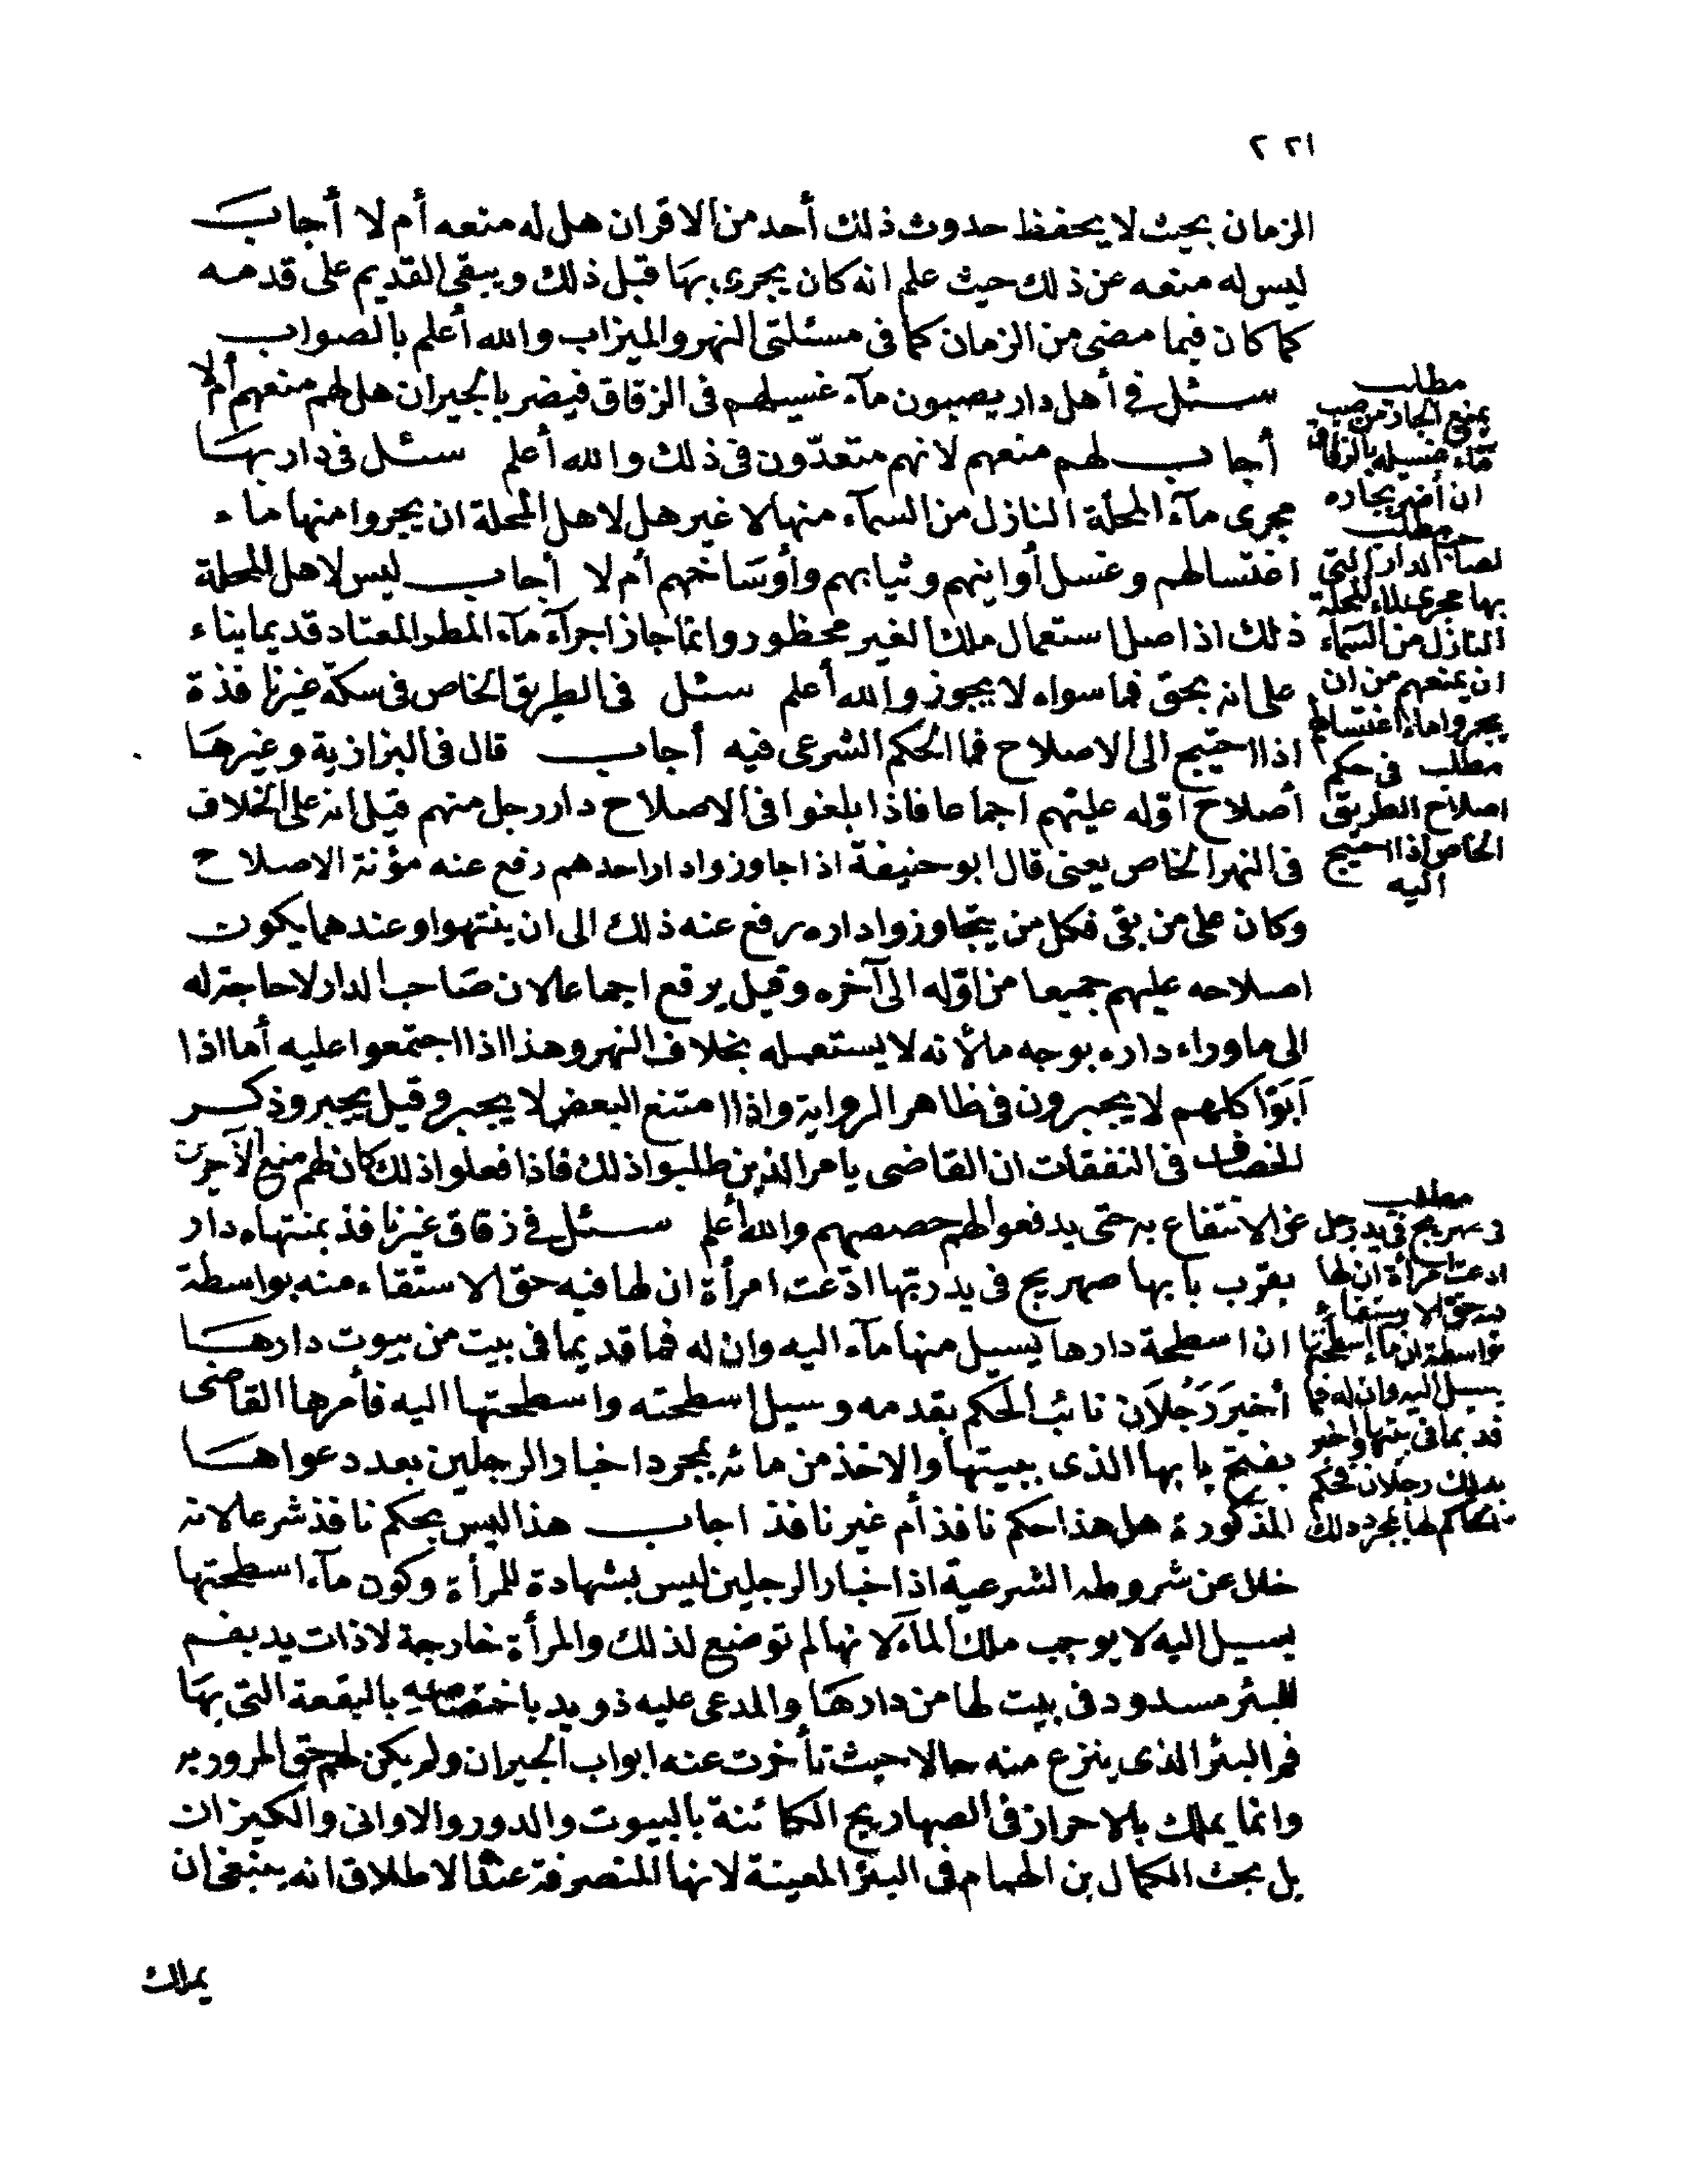 ٢٢١
الزمان بحيث لا يحفظ حدوث ذلك أحد من الاقران هل له منعه أم لا أجاب
ليس له منعه عن ذلك حيث علم انه كان يجرى بها قبل ذلك ويبقى القديم على قدمه
كما كان فيما مضى من الزمان كما فى مسئلتى النهر والميزاب والله أعلم بالصواب
سئل فى أهل دار يصبون مآء غسيلهم فى الزقاق فيضر بالجيران هل لهم منعهم أم لا
أجاب لهم منعهم لانهم متعدّون فى ذلك والله أعلم سئل فى دار بها
مجرى مآء المحلة النازل من السمآء منها لا غير هل لاهل المحلة ان يجروا منها ماء
اغتسالهم وغسل أوانيهم وثيابهم وأوساخهم أم لا أجاب ليس لاهل المحلة
ذلك اذ اصل استعمال ملك الغير محظور وانما جاز اجرآء مآء المطر المعتاد قديما بناء
على انه بحق فما سواه لا يجوز والله أعلم سئل فى الطريق الخاص فى سكة غير نافذة
اذا احتيج الى الاصلاح فما الحكم الشرعى فيه أجاب قال فى البزازية وغيرها
أصلاح اوّله عليهم اجماعا فاذا بلغوا فى الاصلاح دار رجل منهم قيل انه على الخلاف
فى النهر الخاص يعنى قال ابو حنيفة اذا جاوزوا دار احدهم رفع عنه مؤنة الاصلاح
وكان على من بقى فكل من يتجاوزوا داره يرفع عنه ذلك الى ان ينتهوا وعندهما يكون
اصلاحه عليهم جميعا من اوّله الى آخره وقيل يرفع اجماعا لان صاحب الدار لا حاجة له
الى ما وراء داره بوجه ما لأنه لا يستعمله بخلاف النهر وهذا اذا اجتمعوا عليه أما اذا
أبَوْا كلهم لا يجبرون فى ظاهر الرواية واذا امتنع البعض لا يجبر وقيل يجبر وذكر
الخصاف فى النفقات ان القاضى يامر الذين طلبوا ذلك فاذا فعلوا ذلك كان لهم منع الآخرين
عن الانتفاع به حتى يدفعوا لهم حصصهم والله أعلم سئل فى زقاق غير نافذ بمنتهاه دار
بقرب بابها صهريج فى يد ربتها ادّعت امرأة ان لها فيه حق الاستقاء منه بواسطة
ان اسطحة دارها يسيل منها مآء اليه وان له فما قديما فى بيت من بيوت دارها
أخبر رَجُلاَن نائب الحكم بقدمه وسيل اسطحته واسطحتها اليه فأمرها القاضى
بفتح بابها الذى ببيتها والاخذ من مائه بمجرد اخبار الرجلين بعد دعواها
المذكورة هل هذا حكم نافذ أم غير نافذ اجاب هذا ليس بحكم نافذ شرعا لانه
خلل عن شروطه الشرعية اذ اخبار الرجلين ليس بشهادة للمرأة وكون مآء اسطحتها
يسيل اليه لا يوجب ملك المآء لانها لم توضع لذلك والمرأة خارجة لا ذات يد بفم
للبئر مسدود فى بيت لها من دارها والمدعى عليه ذو يد باختصاصه بالبقعة التى بها
فم البئر الذى ينزع منه حالا حيث تأخرت عنه ابواب الجيران ولم يكن لهم حق المرور به
وانما يملك بالاحراز فى الصهاريج الكائنة بالبيوت والدور والاوانى والكيزان
بل بحث الكمال بن الهمام فى البئر المعينة لانها المنصرفة عند الاطلاق انه ينبغى ان
يملك
مطلب
يمنع الجار من صب
مآء غسيله بالزقاق
ان أضر بجاره
مطلب
لصاحب الدار التى
بها مجرى الماء للمحلة
النازل من السماء
ان يمنعهم من ان
يجروا ماء اغتسالهم
مطلب فى حكم
اصلاح الطريق
الخاص اذا احتيج
اليه
مطلب
فى صهريج فى يد رجل
ادعت امرأة ان لها
فيه حق الاستقاء
بواسطة ان ماء اسطحتها
يسيل اليه وان له فما
قديما فى بيتها واخبر
بذلك رجلان فحكم
الحاكم لها بمجرد ذلك